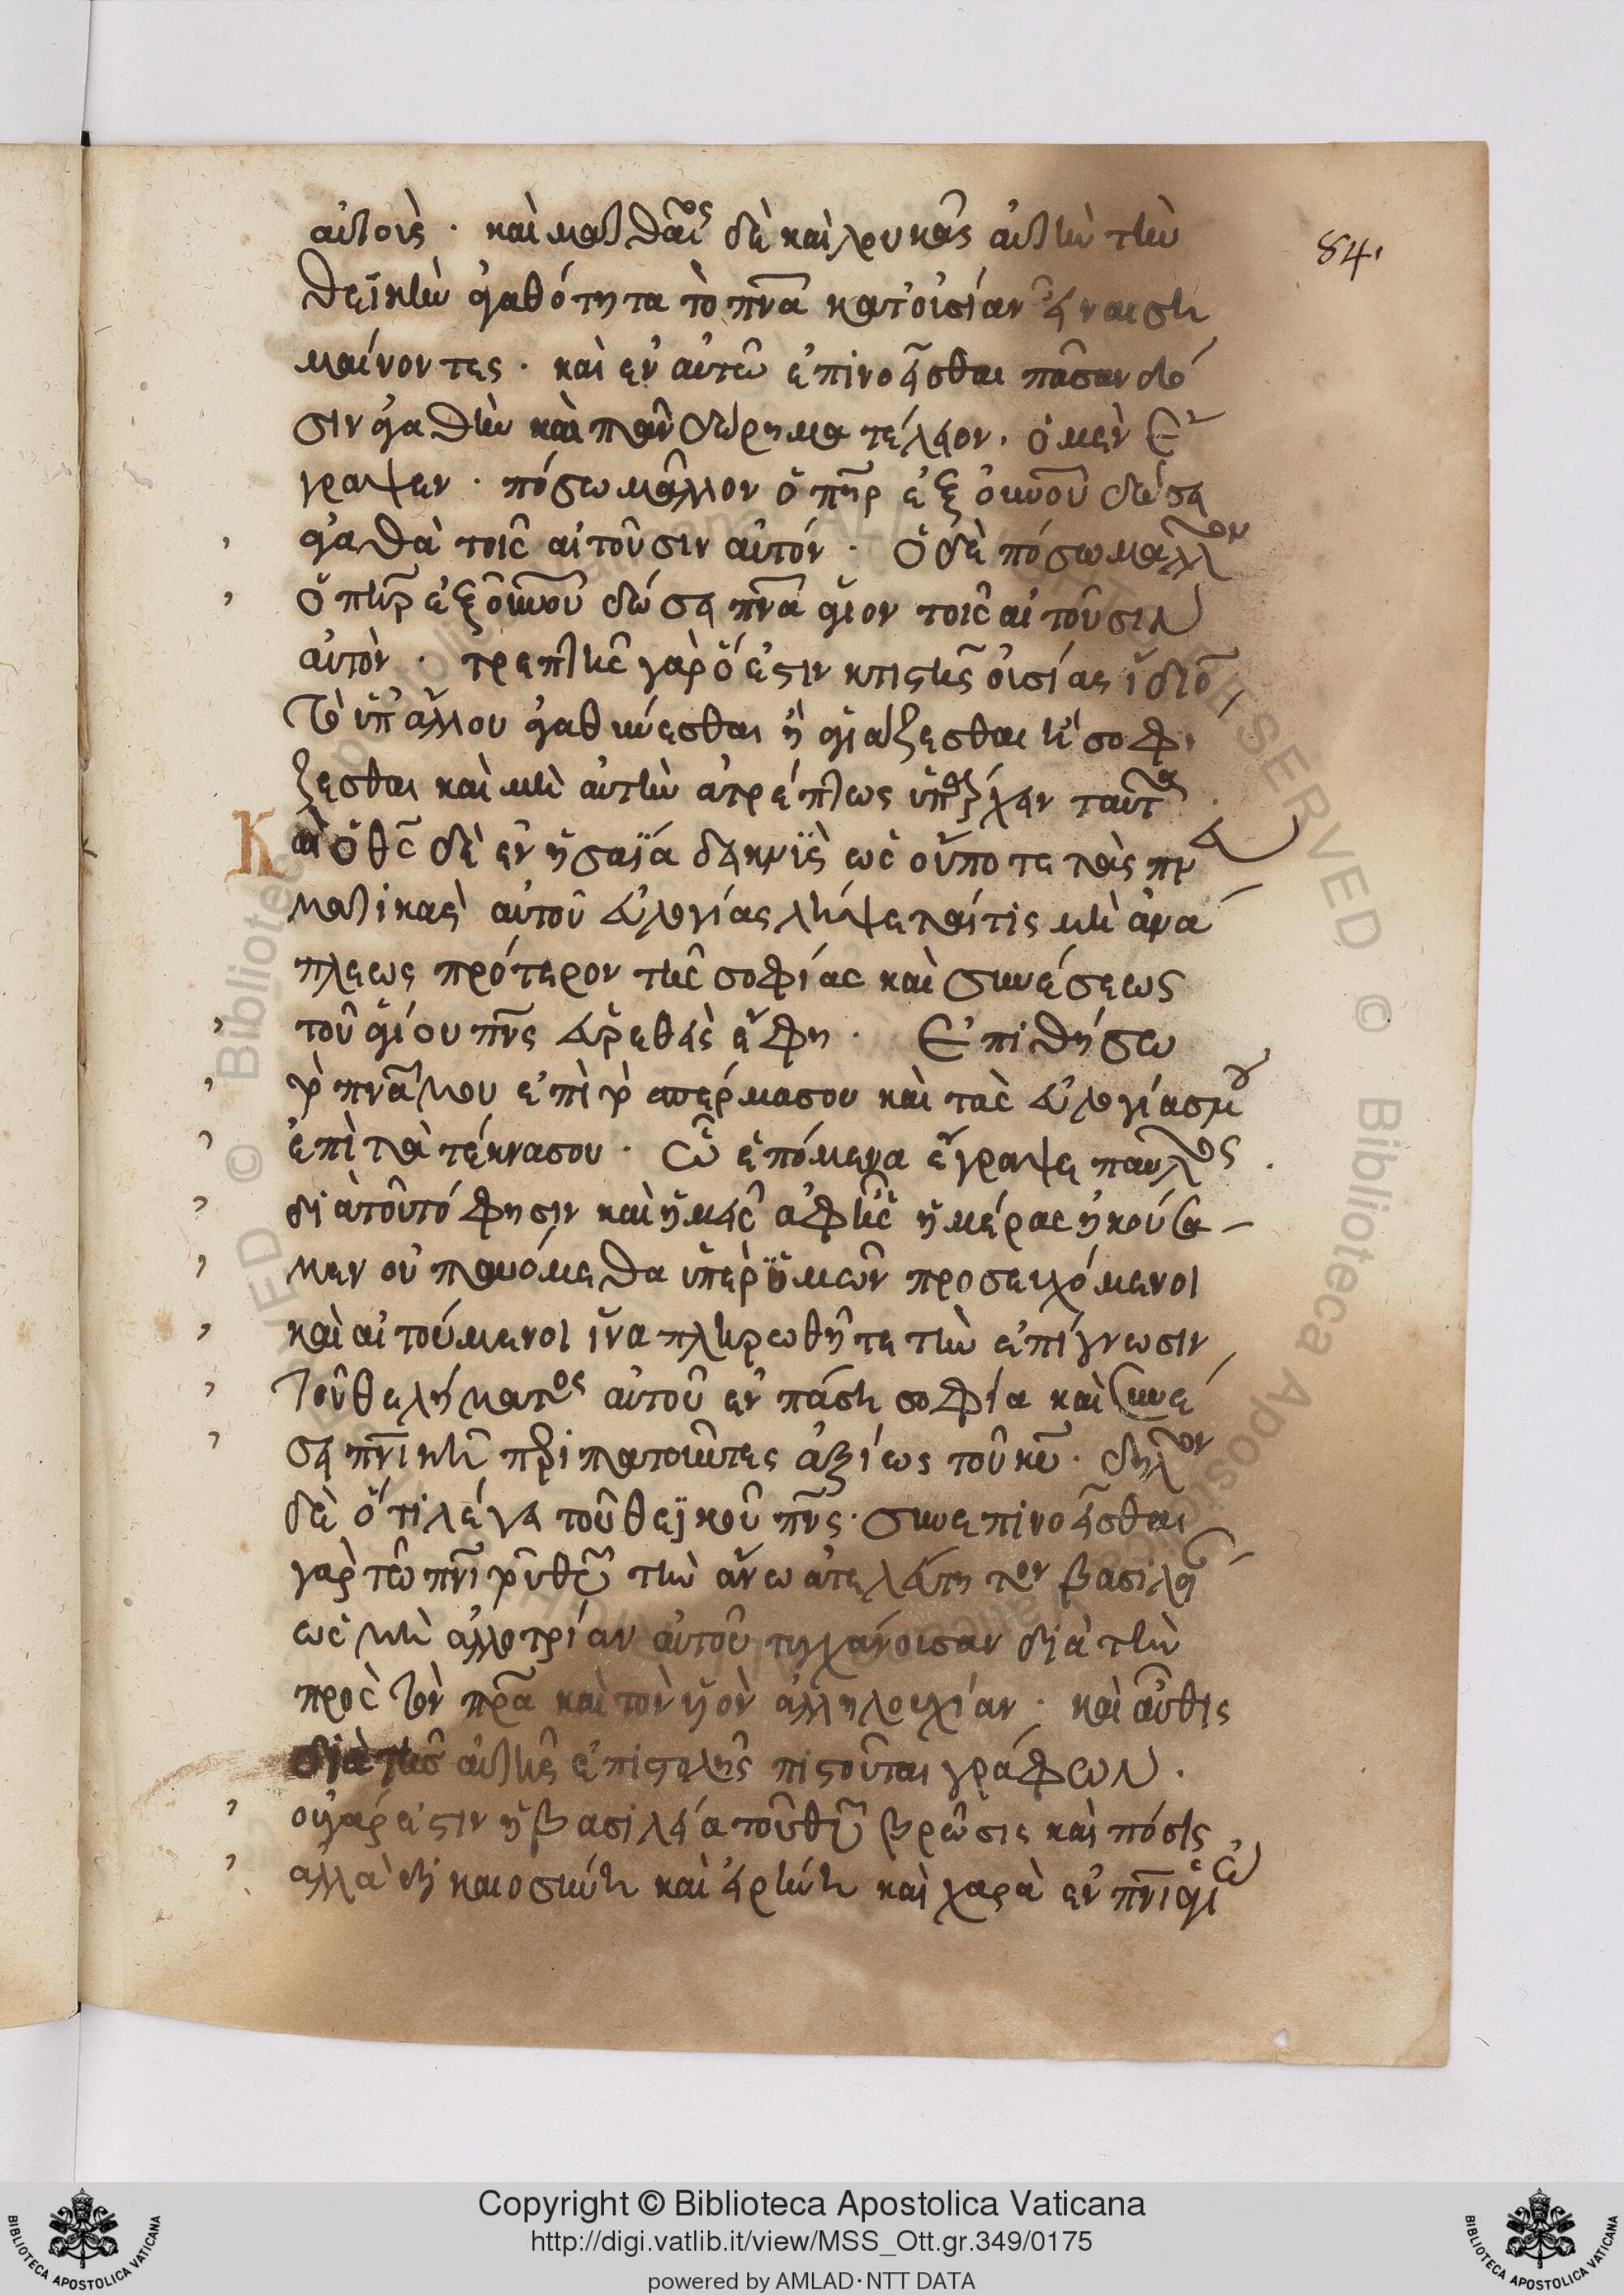 αὐτοὺς · καὶ ματθαῖος δὲ καὶ λουκᾶς αὐτὴν τὴν
84.
θεϊκὴν ἀγαθότητα τὸ πνᾶ κατ' οὐσίαν εἶναι ση
μαίνοντες · καὶ ἐν αὐτῶ ἐπινοεῖσθαι πᾶσαν δό
σιν ἀγαθὴν καὶ πᾶν δώρημα τέλειον · ὁ μὲν ἔ
γραψεν · πόσω μᾶλλον ὁ πηρ ἐξ οὐνοῦ δώσει
ἀγαθὰ τοῖς αἰτοῦσιν αὐτόν · Ὁ δὲ πόσω μᾶλλον
ὁ πηρ ἐξ οὐνοῦ δώσει πνᾶ ἅγιον τοῖς αἰτοῦσιν
αὐτὸν · τρεπτῆς γὰρ ὅ ἐστιν κτιστῆς οὐσίας ἴδιον
τὸ ὑπ' ἄλλου ἀγαθύνεσθαι ἢ ἁγιάζεσθαι ἢ σοφί
ζεσθαι καὶ μὴ αὐτὴν ἀτρέπτως ὑπάρχειν ταῦτα
Καὶ ὁ θς δὲ ἐν ἠσαΐα δεικνὺς ὡς οὔποτε τὰς πν
ματικὰς αὐτοῦ εὐλογίας λήψεταί τις μὴ ἀνά
πλεως πρότερον τῆς σοφίας καὶ συνέσεως
τοῦ ἁγίου πνς εὑρεθεὶς ἔφη · Ἐπιθήσω
τὸ πνᾶ μου ἐπὶ τὸ σπέρμα σου καὶ τὰς εὐλογίας μου
ἐπὶ τὰ τέκνα σου · ὧ ἑπόμενα ἔγραψε παῦλος ·
διὰ τοῦτό φησιν καὶ ἡμεῖς ἀφ' ἧς ἡμέρας ἠκούσα
μεν οὐ παυόμεθα ὑπὲρ ὑμῶν προσευχόμενοι
καὶ αἰτούμενοι ἵνα πληρωθῆτε τὴν ἐπίγνωσιν
τοῦ θελήματος αὐτοῦ ἐν πάση σοφία καὶ συνέ
σει πνικῆ περιπατοῦντες ἀξίως τοῦ κυ · δῆλον
δὲ ὅτι λέγει τοῦ θεϊκοῦ πνς · συνεπινοεῖσθαι
γὰρ τῶ πνι τοῦ θυ τὴν ἄνω ἀτελεύτητον βασιλεί
ὡς μὴ ἀλλοτρίαν αὐτοῦ τυγχάνουσαν διὰ τὴν
πρὸς τὸν πρᾶ καὶ τὸν υἱὸν ἀλληλουχίαν · καὶ αὖθις
διὰ τῆς αὐτῆς ἐπιστολῆς πιστοῦται γράφων ·
οὐ γάρ ἐστιν ἡ βασιλεία τοῦ θυ βρῶσις καὶ πόσις
ἀλλὰ δικαιοσύνη καὶ εἰρήνη καὶ χαρὰ ἐν πνι ἁγίω
Copyright © Biblioteca Apostolica Vaticana
http://digi.vatlib.it/view/MSS_Ott.gr.349/0175
powered by AMLAD·NTT DATA